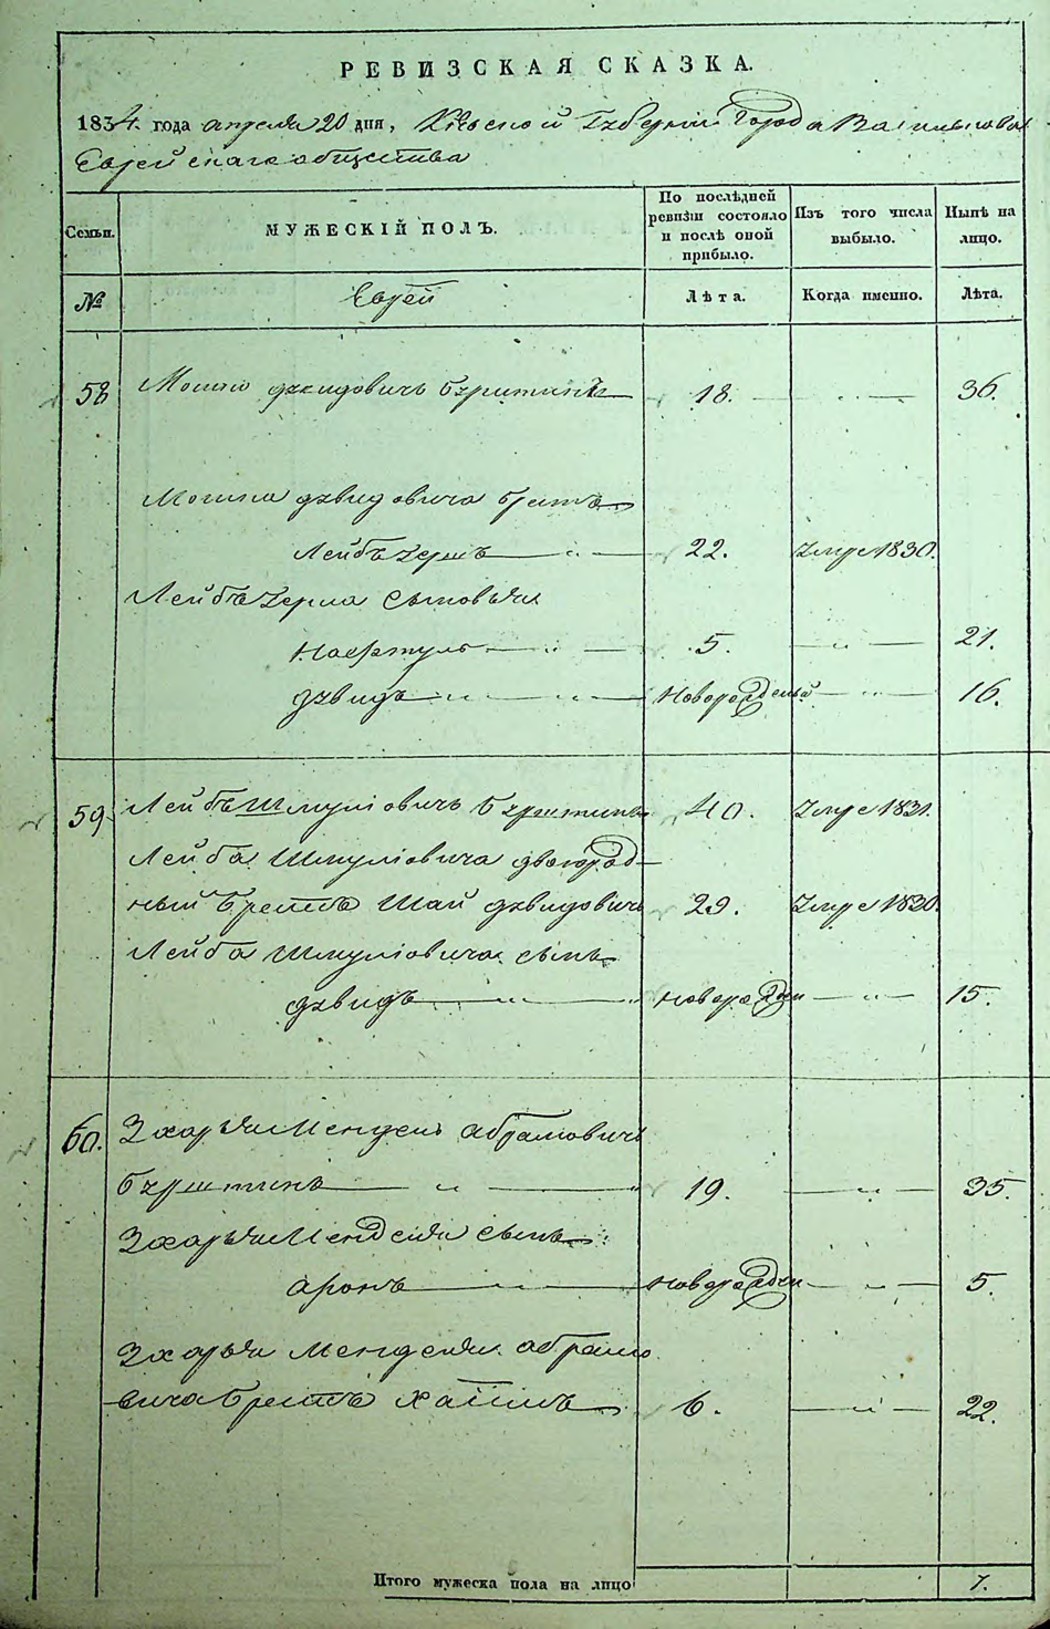 РЕВИЗСКАЯ СКАЗКА.
1834. года апреля 20 дня, Кіевской Губерніи Города Василькова
Еврейскаго общества
Семьи. МУЖЕСКІЙ ПОЛЪ. По послѣдней ревизіи состояло и послѣ оной прибыло. Изъ того числа выбыло. Нынѣ на лицо.
№ Еврей Лѣта. Когда именно. Лѣта.
58 Мошко Давидовичъ Бурштинъ 18. 36.
Мошка Давидовича братъ
Лейбъ Гершъ 22. Умре 1830.
Лейбъ Герша сыновья
Нафтулъ 5. 21.
Давидъ Новорожденый 16.
59 Лейбъ Шмуліовичъ Бурштинъ 40. Умре 1831.
Лейба Шмуліовича двоюрод-
ный братъ Шай Давидовичъ 29. Умре 1830.
Лейба Шмуліовича сынъ
Давидъ новорожден 15.
60. Захарья Мендель Абрамовичъ
Бурштинъ 19. 35.
Захарья Менделя сынъ
Аронъ новорожден 5.
Захарьи Менделя Абрамо
вича братъ Хаимъ 6. 22.
Итого мужеска пола на лицо 7.